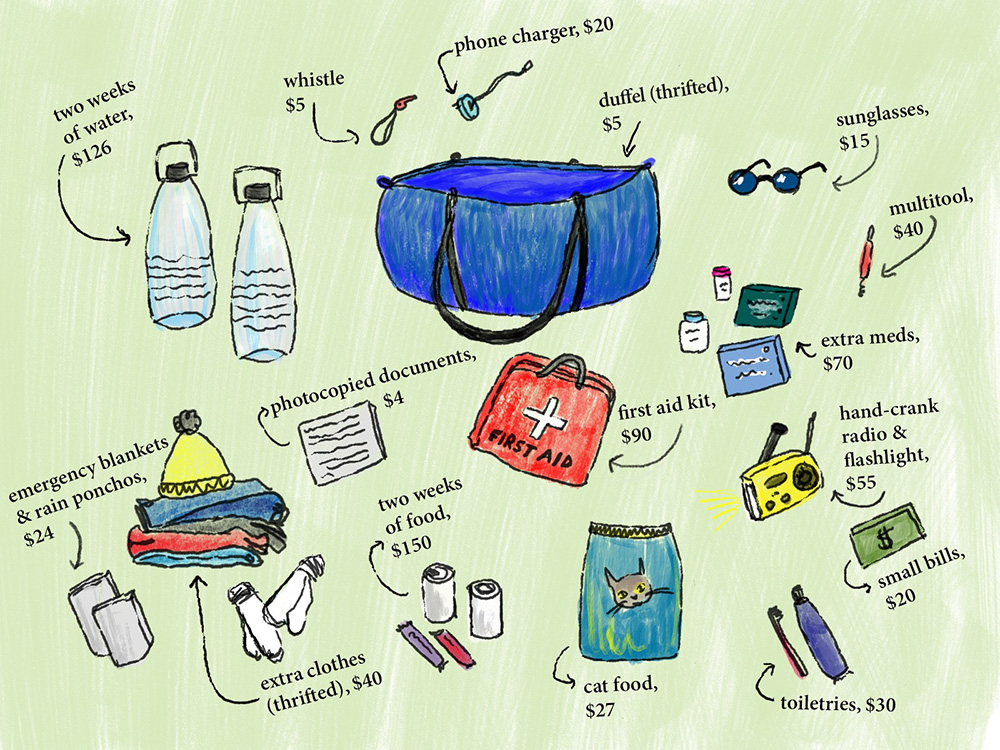 phone charger, $20
whistle
$5
two weeks
of water,
$126
duffel (thrifted),
$5
sunglasses,
$15
multitool,
$40
extra meds,
$70
photocopied documents,
$4
FIRST AID
first aid kit,
$90
hand-crank
radio &
flashlight,
$55
emergency blankets
& rain ponchos,
$24
two weeks
of food,
$150
$
small bills,
$20
extra clothes
(thrifted), $40
cat food,
$27
toiletries, $30